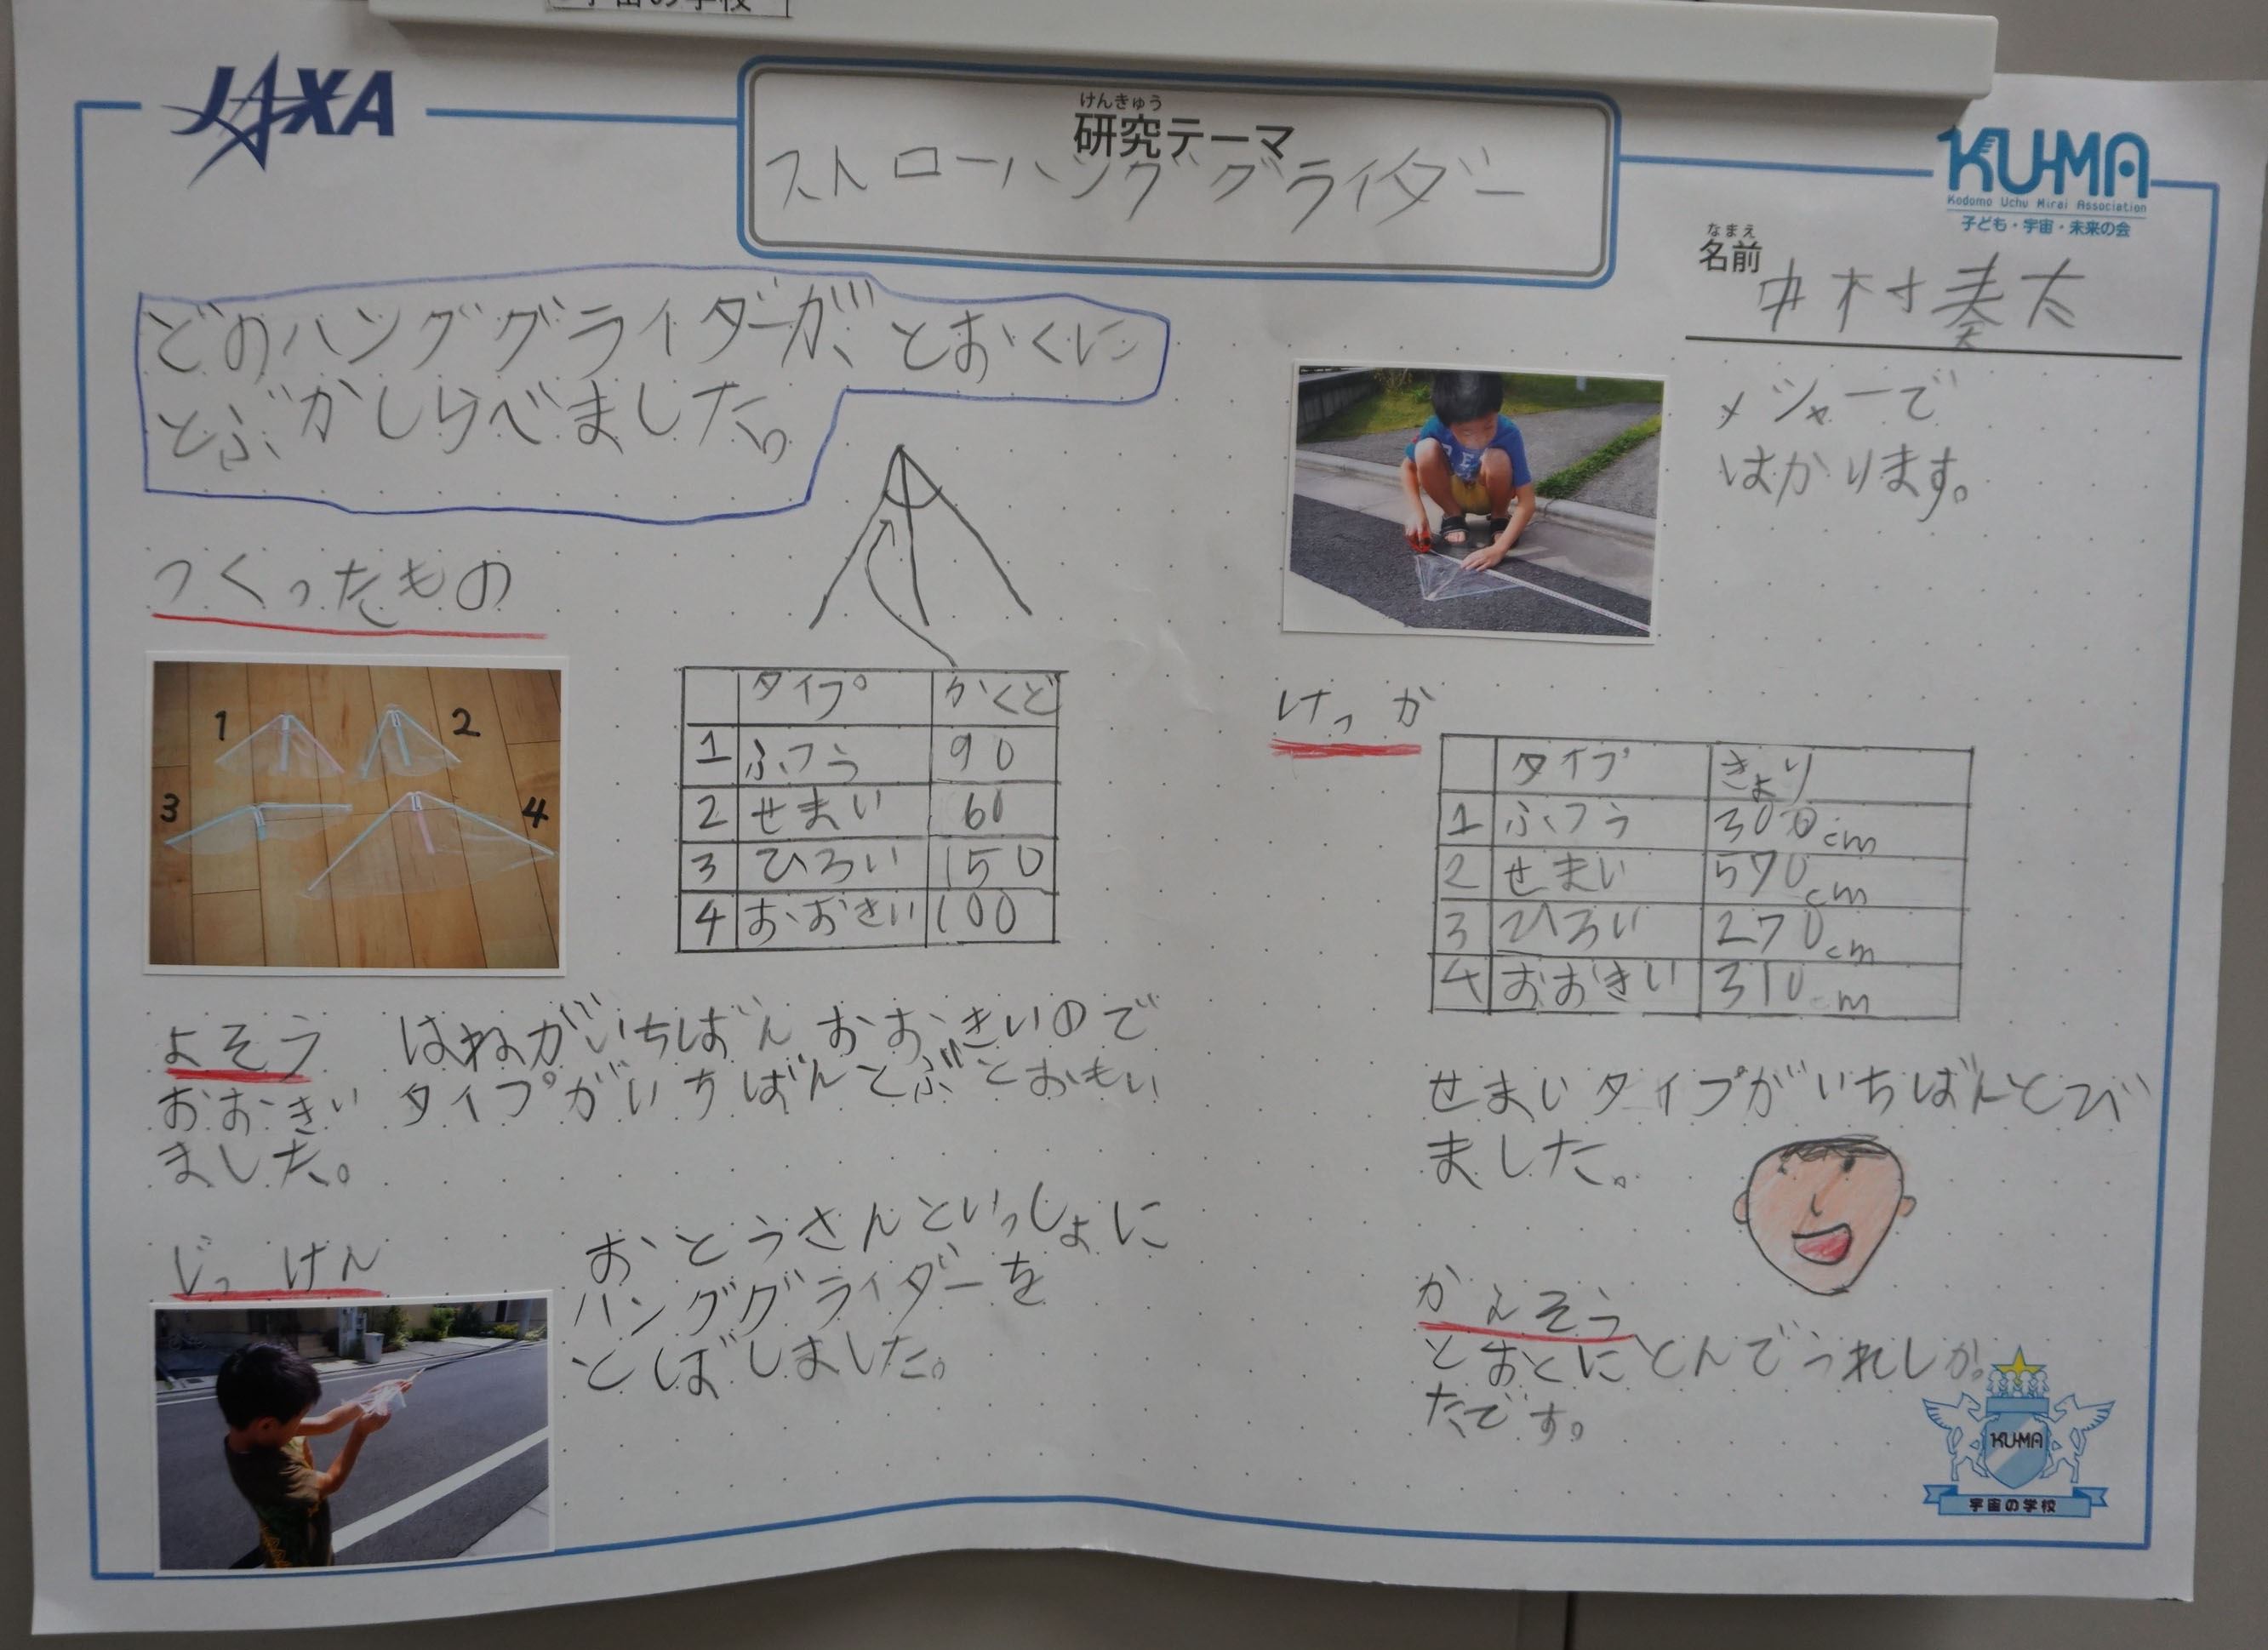 宇宙の学校
JAXA
けんきゅう
研究テーマ
ストローハンググライダー
KU-MA
Kodomo Uchu Mirai Association
子ども・宇宙・未来の会
なまえ
名前
中村奏太
どのハンググライダーが、とおくに
とぶかしらべました。
つくったもの
1
2
3
4
タイプ かくど
1 ふつう 90
2 せまい 60
3 ひろい 150
4 おおきい 100
よそう はねがいちばんおおきいので
おおきい タイプがいちばんとぶとおもい
ました。
じっけん
おとうさんといっしょに
ハンググライダーを
とばしました。
メジャーで
はかります。
けっか
タイプ きょり
1 ふつう 300cm
2 せまい 570cm
3 ひろい 270cm
4 おおきい 310cm
せまいタイプがいちばんとび
ました。
かんそう
とおとにとんでうれしか
たです。
KU-MA
宇宙の学校